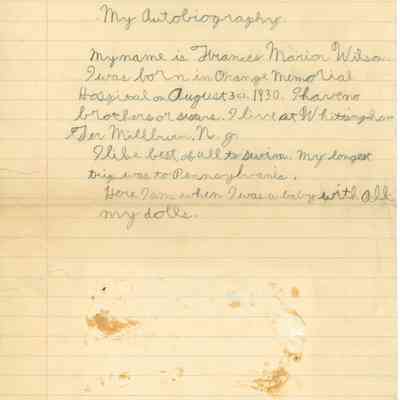 My Autobiography.
My name is Frances Marion Wilson.
I was born in Orange Memorial
Hospital on August 30, 1930. I have no
brothers or sisers. I live at Whittingham
Ter Millburn, N. J.
I like best of all to swim. My longest
trip was to Pennsylvania.
Here I am when I was a baby with all
my dolls.